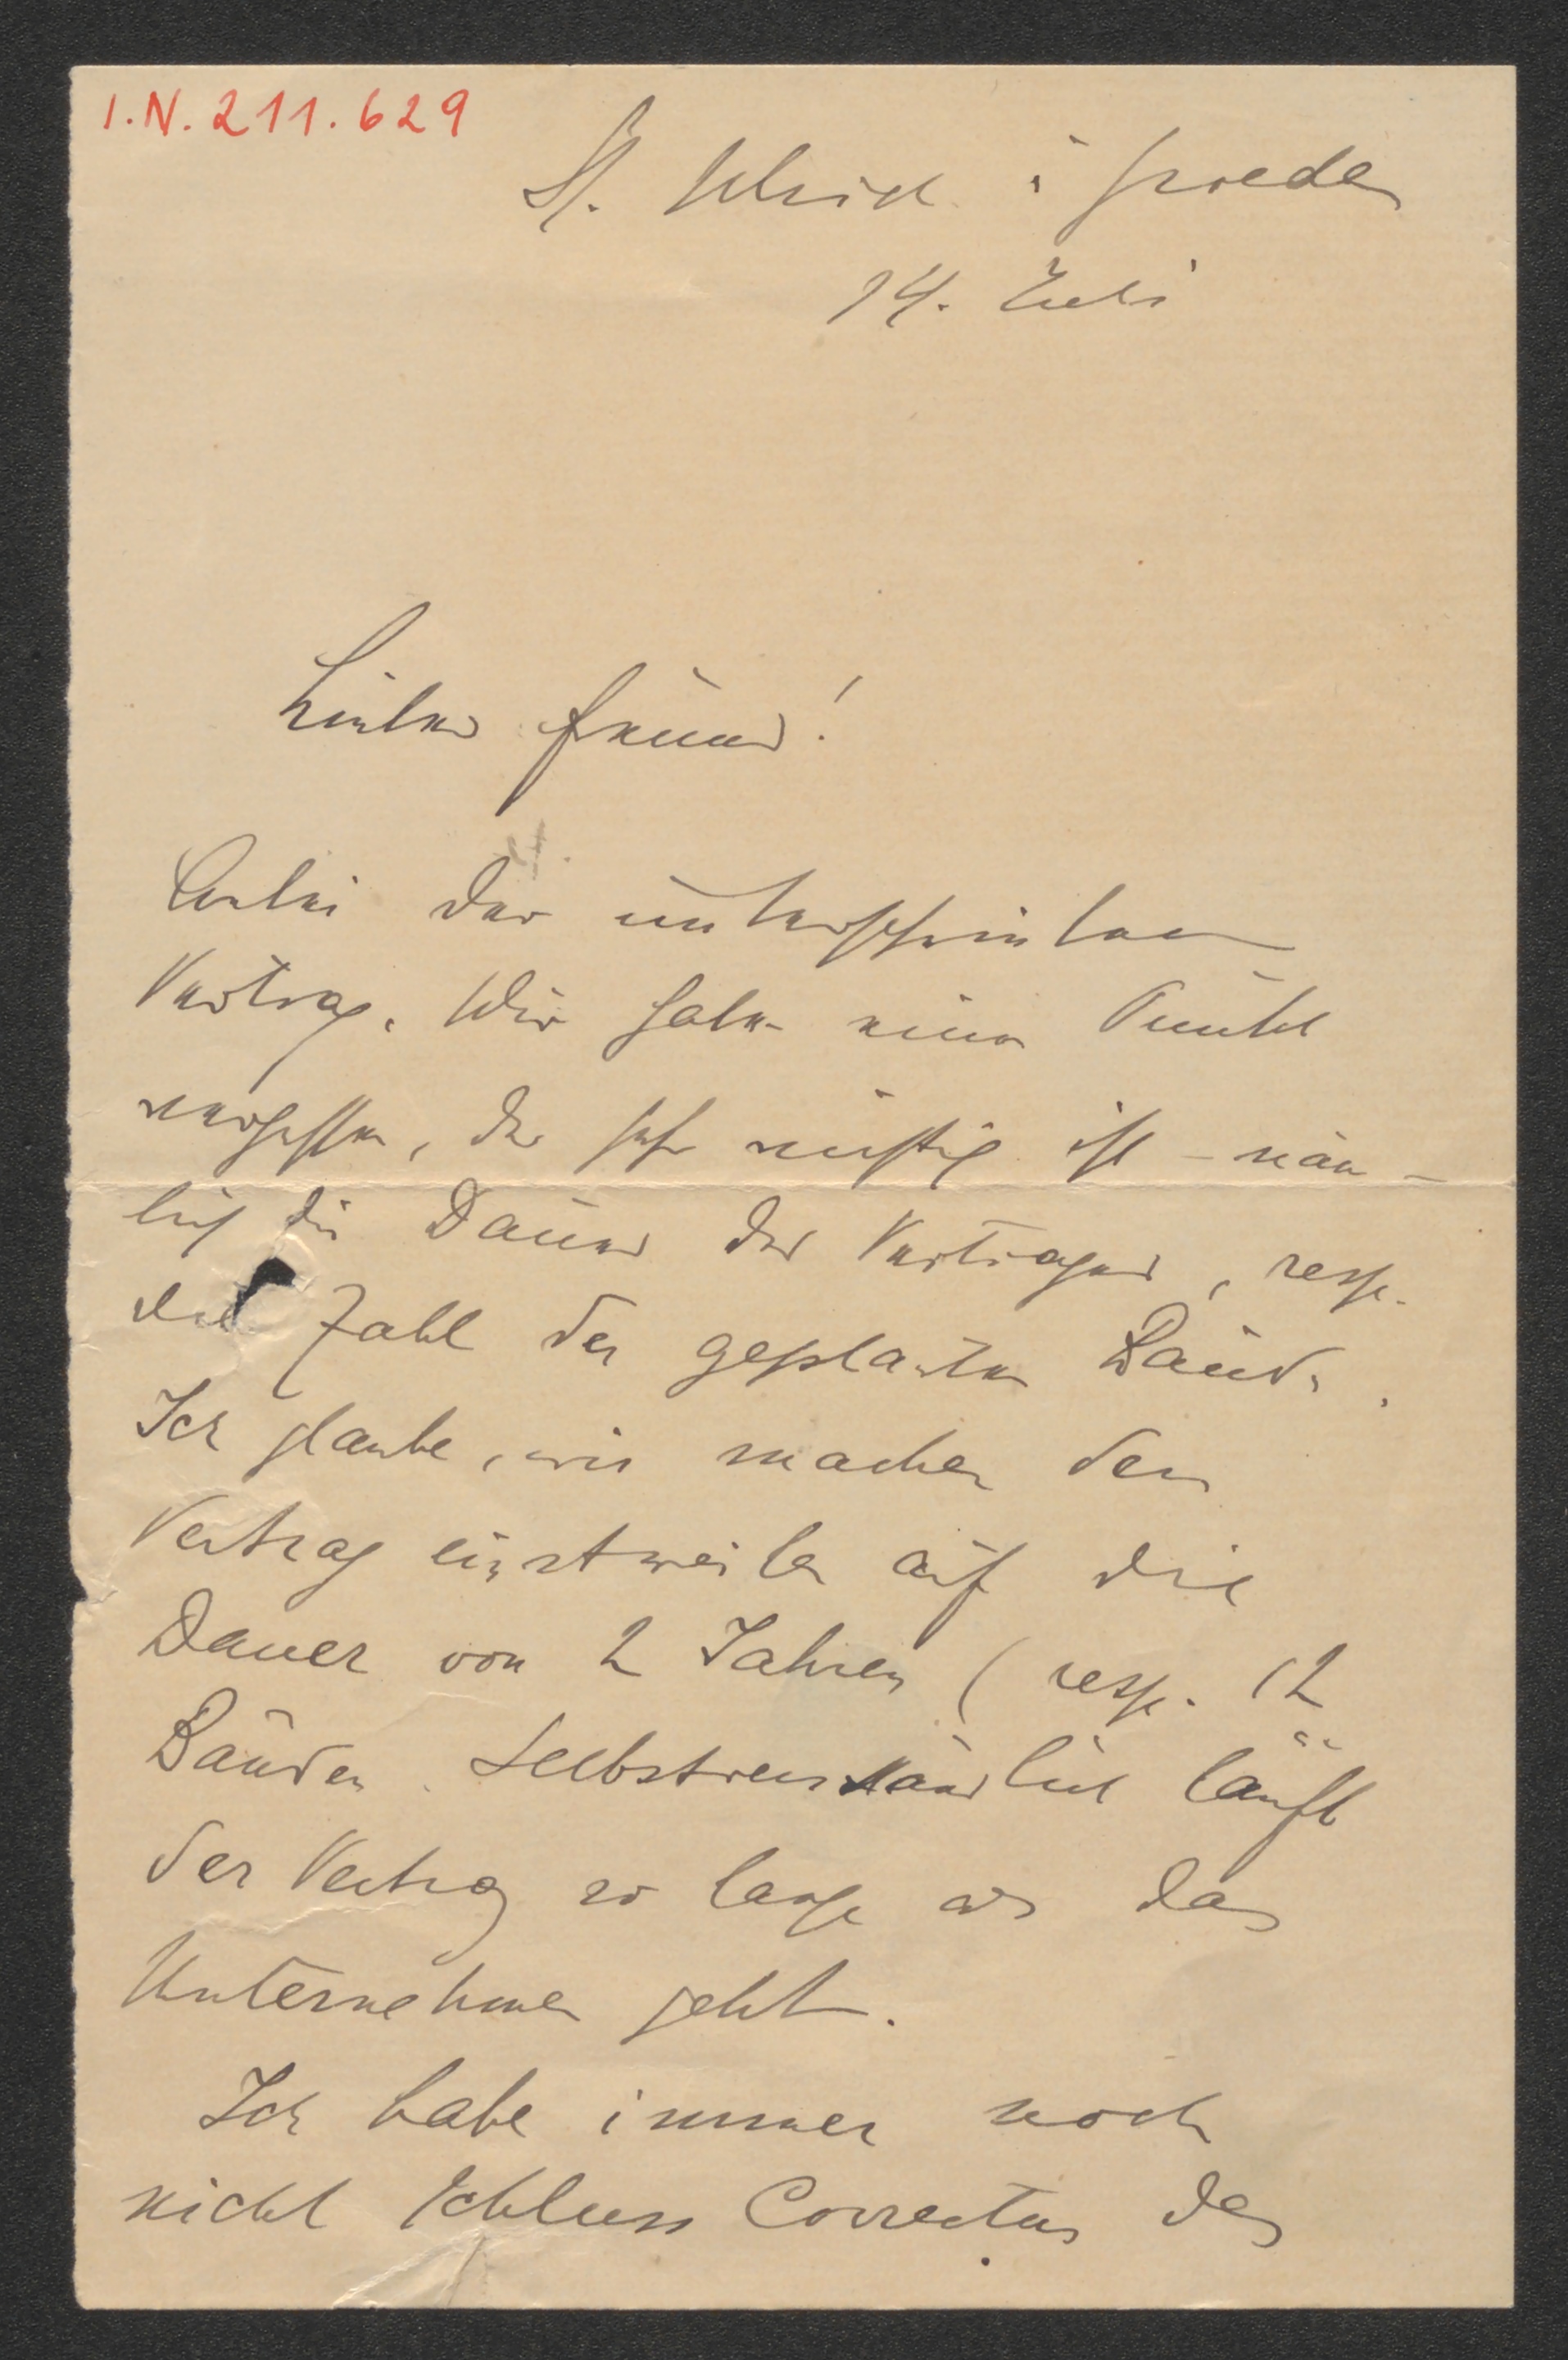 I.N. 211.629
St. Ulrich i Groeden
14. Juli
Lieber Freund!
Anbei der unterschriebene
Vertrag. Wir haben einen Punkt
vergessen, der sehr wichtig ist – näm–
lich die Dauer des Vertrages, resp.
die Zahl der geplanten Bände.
Ich glaube, wir machen den
Vertrag einstweilen auf die
Dauer von 2 Jahren (resp. 12
Bänden. Selbstverständlich läuft
der Vertrag so lange als das
Unternehmen geht.
Ich habe immer noch
nicht Schluss Correctur des